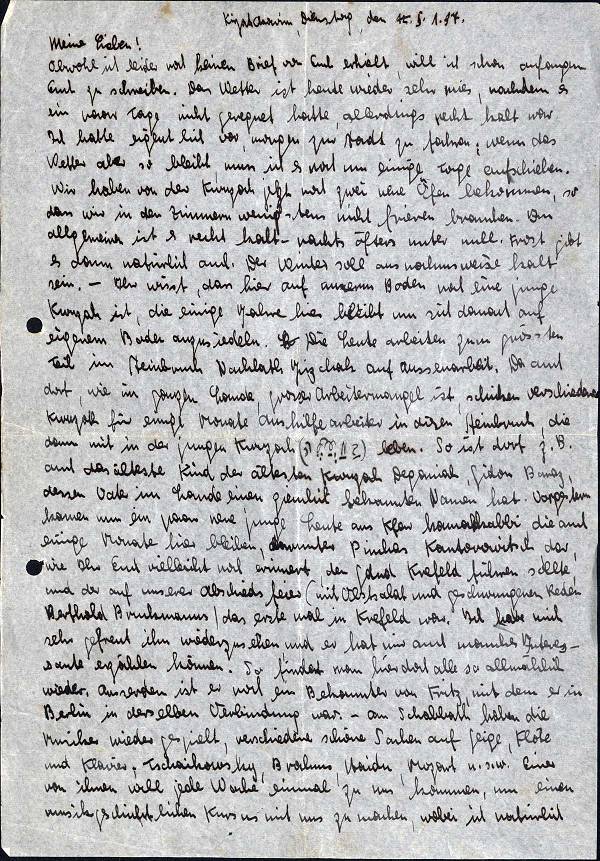 Dienstag, den 5. 1. 37.
Meine Lieben!
Obwohl ich leider noch keinen Brief von Euch erhielt, will ich schon anfangen
Euch zu schreiben. Das Wetter ist heute wieder sehr mies, nachdem es
ein paar Tage nicht geregnet hatte, allerdings recht kalt war.
Ich hatte eigentlich vor, morgen zur Stadt zu fahren; wenn das
Wetter aber so bleibt, muss ich es noch um einige Tage aufschieben.
Wir haben von der Kwuzah jetzt noch zwei neue Öfen bekommen, so
dass wir in den Zimmern wenigstens nicht frieren brauchen. Im
allgemeinen ist es recht kalt – nachts öfters unter null. Frost gibt
es dann natürlich auch. Der Winter soll ausnahmsweise kalt
sein. – Ihr wisst, dass hier auf unserem Boden noch eine junge
Kwuzah ist, die einige Jahre hier bleibt um sich danach auf
eigenem Boden anzusiedeln. Die Leute arbeiten zum grössten
Teil im Steinbruch Nachlath Jizchak auf Aussenarbeit. Da auch
dort, wie im ganzen Lande, grosser Arbeitermangel ist, schicken verschiedene
Kwuzoth für einige Monate Aushilfearbeiter in diesen Steinbruch, die
dann mit in der jungen Kwuzah leben. So ist dort z. B.
auch das älteste Kind der ältesten Kwuzah Deganiah, Gidon Baraz,
dessen Vater im Lande einen ziemlich bekannten Namen hat. Vorgestern
kamen nun ein paar neue junge Leute aus Kfar Hamakkabbi die auch
einige Monate hier bleiben, darunter Pinchas Kantorowitsch der,
wie Ihr Euch vielleicht noch erinnert, den Snif Krefeld führen sollte,
und der auf unserer Abschiedsfeier (mit Obstsalat und geschwungenen Reden
Berthold Bruckmanns) das erste mal in Krefeld war. Ich habe mich
sehr gefreut ihn wiederzusehen, und er hat mir auch manches Interes-
sante erzählen können. So findet man hier doch alle so allmählich
wieder. Ausserdem ist er noch ein Bekannter von Fritz mit dem er in
Berlin in derselben Verbindung war. – Am Schabbath haben die
Musiker wieder gespielt, verschiedene schöne Sachen auf Geige, Flöte
und Klavier. Tschaikowsky, Brahms, Haidn, Mozart u.s.w. Einer
von ihnen will jede Woche einmal zu uns kommen, um einen
musikgeschichtlichen Kursus mit uns zu machen, wobei ich natürlich